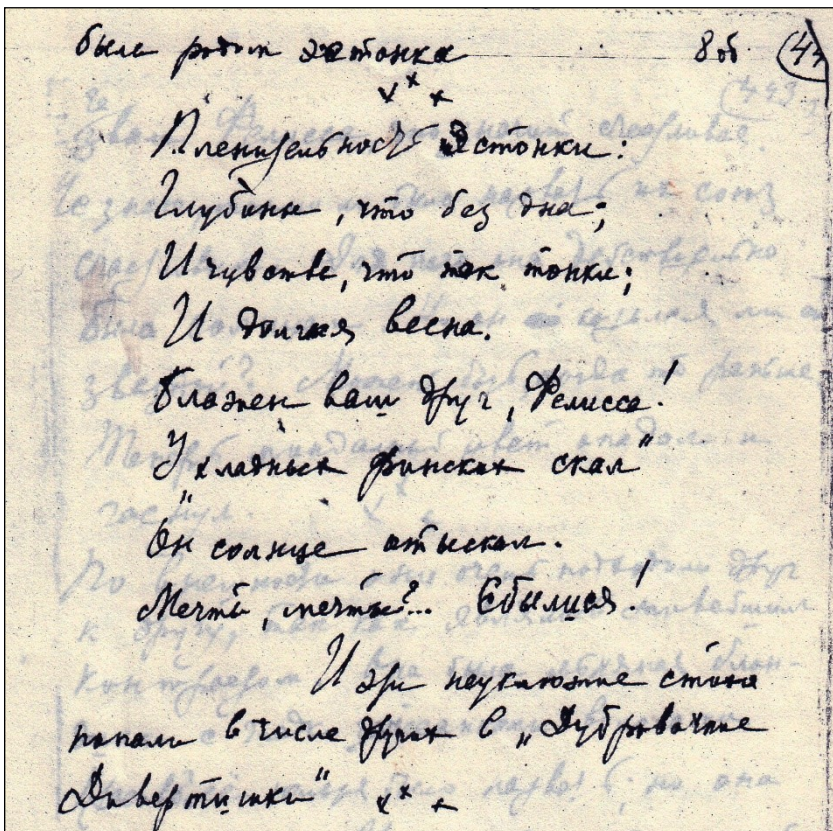 была родом эстонка 8 об
Пленительность эстонки:
Глубины, что без дна;
И чувства, что так тонки;
И долгая весна.
Блажен ваш друг, Фелисса!
У хладных финских скал"
"Он солнце отыскал.
Мечты, мечты?... Сбылися!
И эти неуклюжие стихи
попали в числе других в „Дубровочные
Дивертишки"